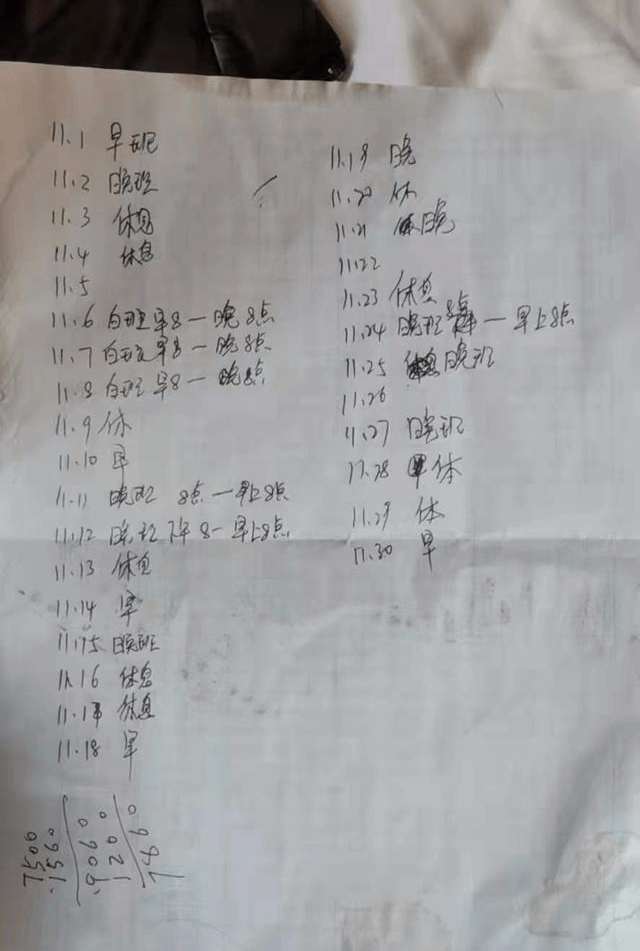 11.1 早班
11.2 晚班
11.3 休息
11.4 休息
11.5
11.6 白班早8一晚8点
11.7 白班早8一晚8点
11.8 白班早8一晚8点
11.9 休
11.10 早
11.11 晚班 8点一早上8点
11.12 晚班 下午8一早上8点
11.13 休息
11.14 早
11.15 晚班
11.16 休息
11.17 休息
11.18 早
11.19 晚
11.20 休
11.21 晚
11.22
11.23 休息
11.24 晚班 8点一早上8点
11.25 晚班
11.26
11.27 晚班
11.28 休
11.29 休
11.30 早